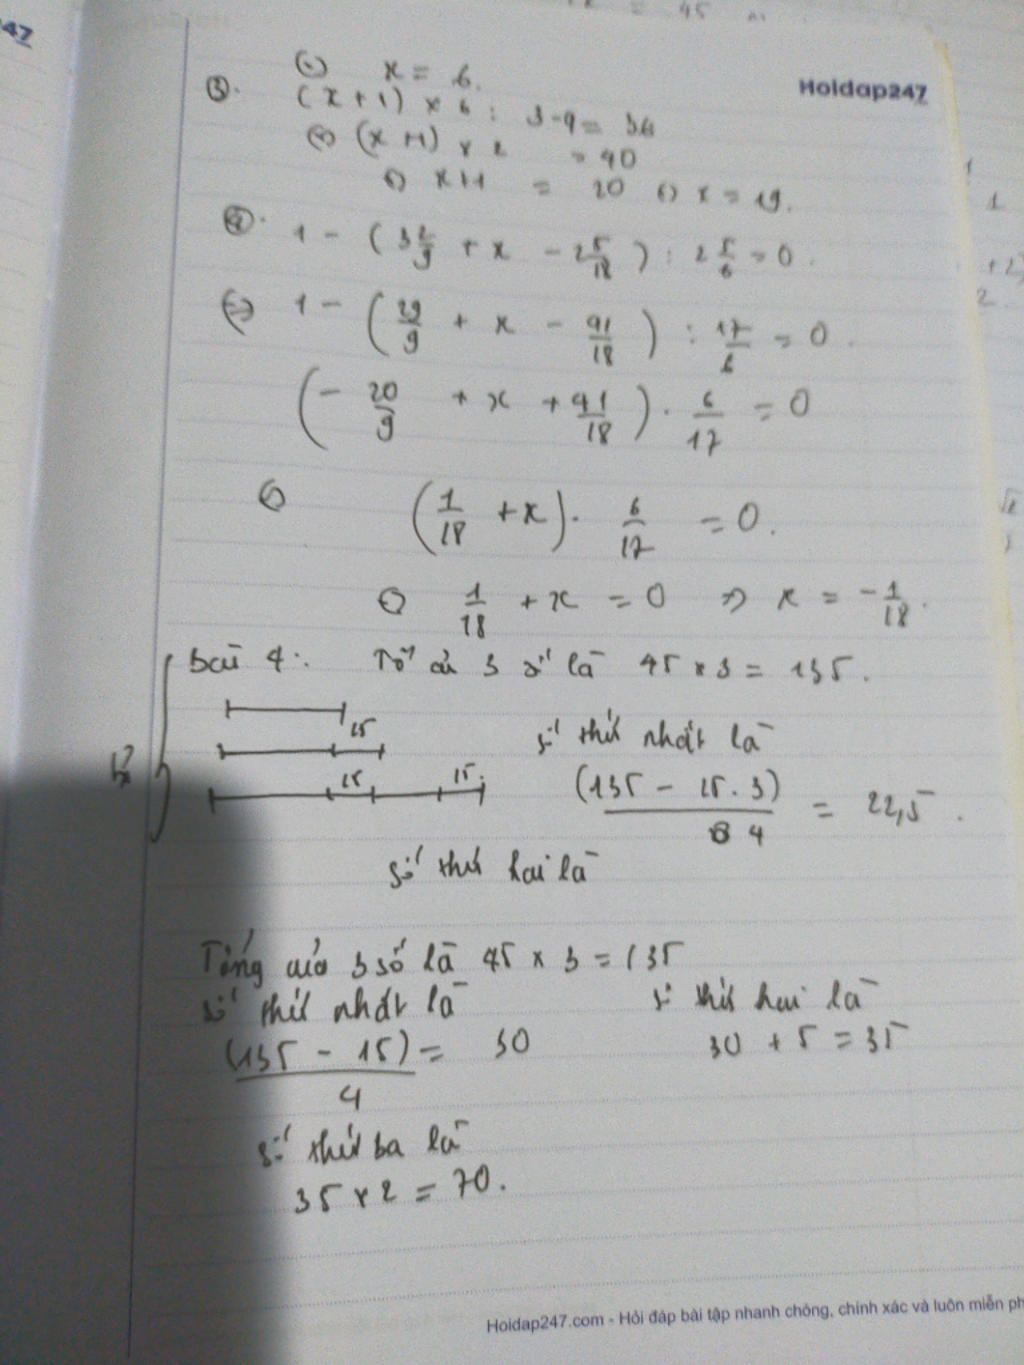 247
= 45
x = 6.
Hoidap247
③. (x+1) × 6 : 3 - 4 = 36
(x+1) × 2 = 40
x+1 = 20 x = 19.
④. 1 - (3 2/9 + x - 2 5/18) : 2 5/6 = 0.
1 - (29/9 + x - 41/18) : 17/6 = 0.
(- 20/9 + x + 41/18) . 6/17 = 0
(1/18 + x) . 6/17 = 0.
1/18 + x = 0 => x = -1/18.
bài 4: Tổ củ 3 số là 45 × 3 = 135.
15
số thứ nhất là
15 15
(135 - 15.3)/4 = 22,5.
số thứ hai là
Tổng của 3 số là 45 × 3 = 135
số thứ nhất là số thứ hai là
(135 - 15)/4 = 30 30 + 5 = 35
số thứ ba là
35 × 2 = 70.
Hoidap247.com - Hỏi đáp bài tập nhanh chóng, chính xác và luôn miễn ph